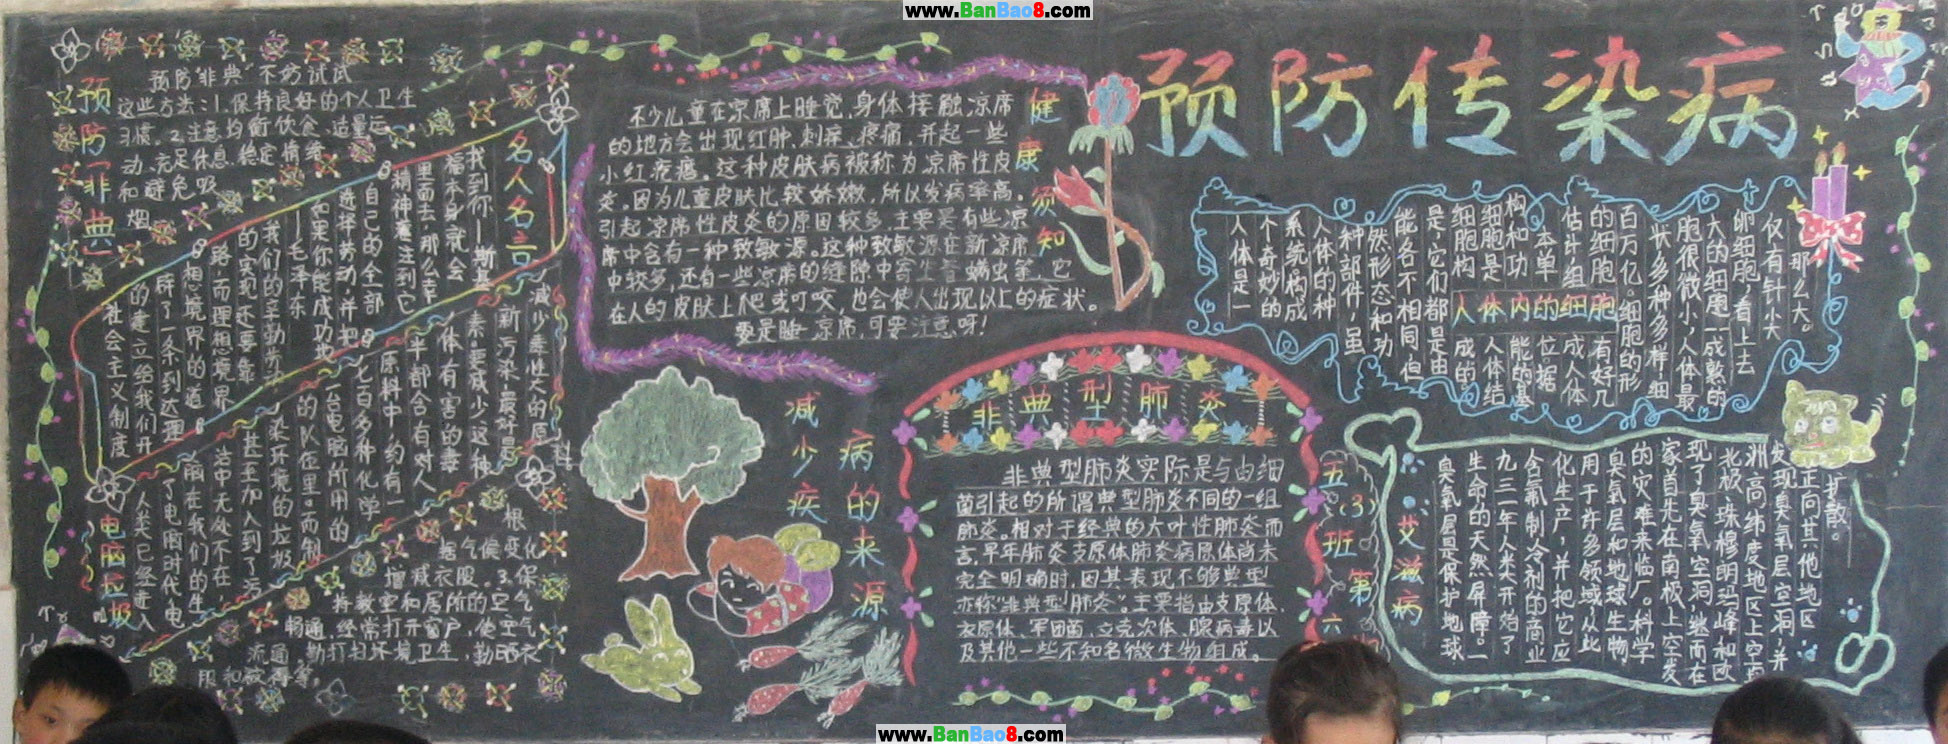 www.BanBao8.com
预防传染病
预防"非典"
预防"非典"不妨试试
这些方法:1.保持良好的个人卫生
习惯。2.注意均衡饮食、适量运
动、充足休息、稳定情绪
和避免吸
烟
根
据气候变化
增减衣服。3.保
持教室和居所的空气
畅通,经常打开窗户,使空气
流通。勤打扫环境卫生,勤晒衣
服和被褥等。
名人名言
我到你——斯
福本身就会
里面去,那么幸
精神灌注到它
自己的全部
选择劳动并把
如果你能成功地
——毛泽东
我们的辛勤劳
的实现还要靠
路,而理想境界
想境界的道
辟了一条到达理
的建立给我们开
社会主义制度
电脑垃圾
人类已经进入
了电脑时代,电
脑在我们的生
活中无处不在,
甚至加入到了污
染环境的垃圾
的队伍里。而制
一台电脑所用的
七百多种化学
原料中,约有一
半部含有对人
体有害的毒
素,要减少这种
新污染,最好是
减少毒性大的原
料
健康须知
不少儿童在凉席上睡觉,身体接触凉席
的地方会出现红肿、刺痒、疼痛,并起一些
小红疙瘩。这种皮肤病被称为凉席性皮
炎。因为儿童皮肤比较娇嫩,所以发病率高。
引起凉席性皮炎的原因较多,主要是有些凉
席中含有一种致敏源。这种致敏源在新凉席
中较多,还有一些凉席的缝隙中寄生着螨虫等,它
在人的皮肤上爬或叮咬,也会使人出现以上的症状。
要是睡凉席,可要注意呀!
减少疾
病的来源
非典型肺炎
非典型肺炎实际是与由细
菌引起的所谓典型肺炎不同的一组
肺炎。相对于经典的大叶性肺炎而
言,早年肺炎支原体肺炎病原体尚未
完全明确时,因其表现不够典型
亦称"非典型肺炎"。主要指由支原体、
衣原体、军团菌、立克次体、腺病毒以
及其他一些不知名微生物组成。
五(3)班第六
人体内的细胞
人体是一
个奇妙的
系统,构成
人体的种
种部件,虽
然形态和功
能各不相同,但
是它们都是由
细胞构成的
细胞是人体结
构和功能的基
本单位,据
估计,组成人体
的细胞有好几
百万亿,细胞的形
状多种多样,细
胞很微小,人体最
大的细胞—成熟的
卵细胞,看上去
仅有针尖
那么大。
艾滋病
臭氧层是保护地球
生命的天然屏障。一
九三年人类开始了
含氟制冷剂的商业
化生产,并把它应
用于许多领域,从此
臭氧层和地球生物
的灾难来临厂。科学
家首先在南极上空发
现了臭氧空洞,继而在
北极、珠穆朗玛峰和欧
洲高纬度地区上空均
发现臭氧层空洞,并
正向其他地区
扩散。
www.BanBao8.com